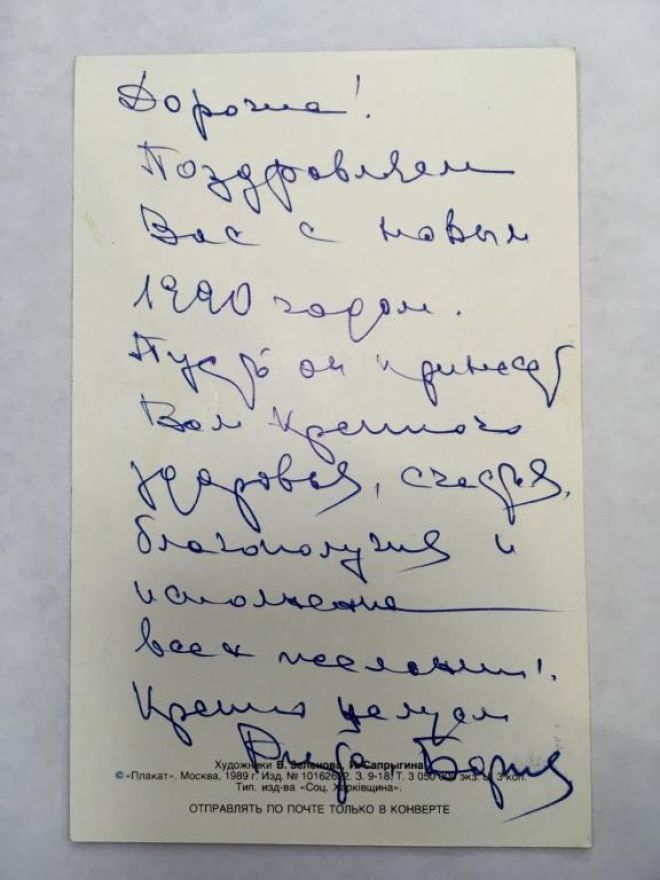 Дорогие!
Поздравляем
Вас с новым
1990 годом.
Пусть он принесет
Вам крепкого
здоровья, счастья,
благополучия и
исполнения
всех желаний!
Крепко целуем
Рита Борис
Художники В. Зеленова, И. Сапрыгина
© «Плакат». Москва, 1989 г. Изд. № З. 9-18. Т. 3 экз. Ц. 3 коп.
Тип. изд-ва «Соц. Харківщина».
ОТПРАВЛЯТЬ ПО ПОЧТЕ ТОЛЬКО В КОНВЕРТЕ